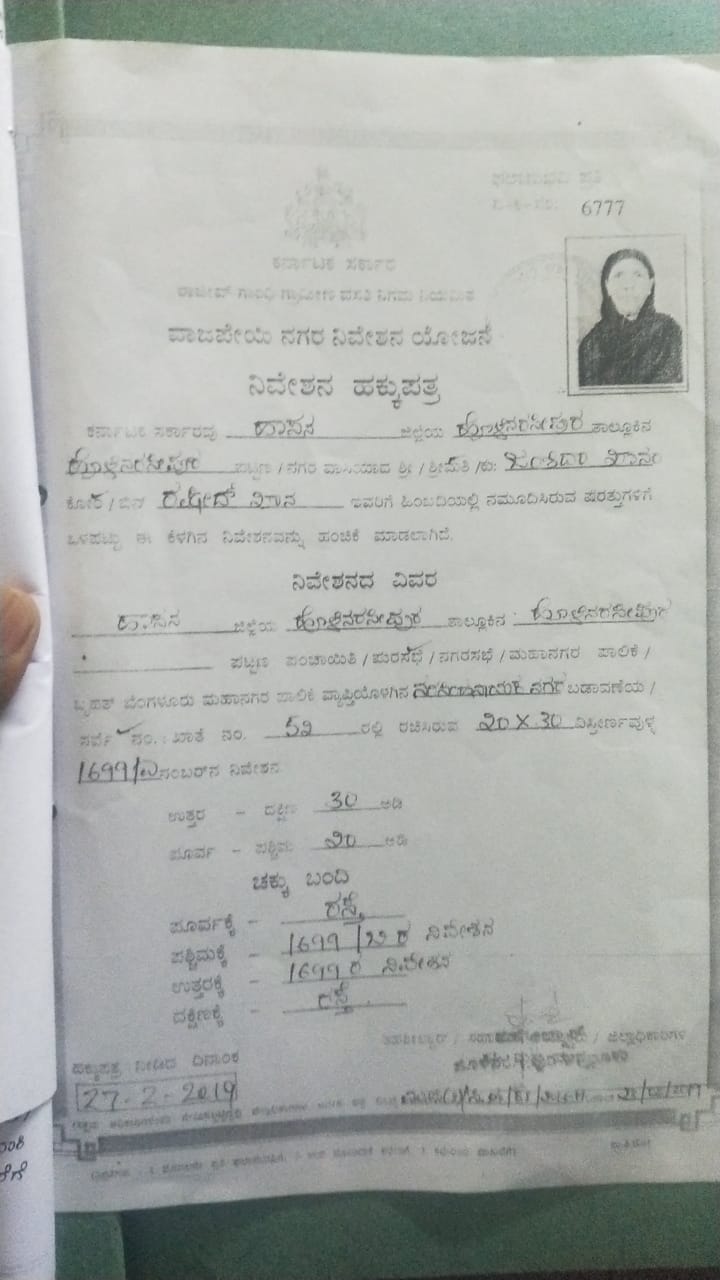 ಫಲಾನುಭವಿ ಪ್ರತಿ
6777
ಕರ್ನಾಟಕ ಸರ್ಕಾರ
ರಾಜೀವ್ ಗಾಂಧಿ ಗ್ರಾಮೀಣ ವಸತಿ ನಿಗಮ ನಿಯಮಿತ
ವಾಜಪೇಯಿ ನಗರ ನಿವೇಶನ ಯೋಜನೆ
ನಿವೇಶನ ಹಕ್ಕುಪತ್ರ
ಕರ್ನಾಟಕ ಸರ್ಕಾರವು ಹಾಸನ ಜಿಲ್ಲೆಯ ಹೊಳೆನರಸೀಪುರ ತಾಲ್ಲೂಕಿನ
ಹೊಳೆನರಸೀಪುರ ಪಟ್ಟಣ / ನಗರ ವಾಸಿಯಾದ ಶ್ರೀ / ಶ್ರೀಮತಿ / ಕು:
ಕೋರಿ / ಬಿನ್ ರಷೀದ್ ಖಾನ್ ಇವರಿಗೆ ಹಿಂಬದಿಯಲ್ಲಿ ನಮೂದಿಸಿರುವ ಷರತ್ತುಗಳಿಗೆ
ಒಳಪಟ್ಟು ಈ ಕೆಳಗಿನ ನಿವೇಶನವನ್ನು ಹಂಚಿಕೆ ಮಾಡಲಾಗಿದೆ.
ನಿವೇಶನದ ವಿವರ
ಹಾಸನ ಜಿಲ್ಲೆಯ ಹೊಳೆನರಸೀಪುರ ತಾಲ್ಲೂಕಿನ ಹೊಳೆನರಸೀಪುರ
ಪಟ್ಟಣ ಪಂಚಾಯಿತಿ / ಪುರಸಭೆ / ನಗರಸಭೆ / ಮಹಾನಗರ ಪಾಲಿಕೆ /
ಬೃಹತ್ ಬೆಂಗಳೂರು ಮಹಾನಗರ ಪಾಲಿಕೆ ವ್ಯಾಪ್ತಿಯೊಳಗಿನ ನರಸಿಂಹನಾಯಕ ನಗರ ಬಡಾವಣೆಯ /
ಸರ್ವೆ ನಂ. : ಖಾತೆ ನಂ. 52 ರಲ್ಲಿ ರಚಿಸಿರುವ 20 X 30 ವಿಸ್ತೀರ್ಣವುಳ್ಳ
1699/ಎ ನಂಬರ್‌ನ ನಿವೇಶನ
ಉತ್ತರ – ದಕ್ಷಿಣ 30 ಅಡಿ
ಪೂರ್ವ – ಪಶ್ಚಿಮ 20 ಅಡಿ
ಚಕ್ಕು ಬಂದಿ
ಪೂರ್ವಕ್ಕೆ – ರಸ್ತೆ
ಪಶ್ಚಿಮಕ್ಕೆ – 1699/ಬಿ ರ ನಿವೇಶನ
ಉತ್ತರಕ್ಕೆ – 1699 ರ ನಿವೇಶನ
ದಕ್ಷಿಣಕ್ಕೆ – ರಸ್ತೆ
ತಹಶೀಲ್ದಾರ್ / / ಜಿಲ್ಲಾಧಿಕಾರಿಗಳ
ಹಕ್ಕುಪತ್ರ ನೀಡಿದ ದಿನಾಂಕ
27-2-2019